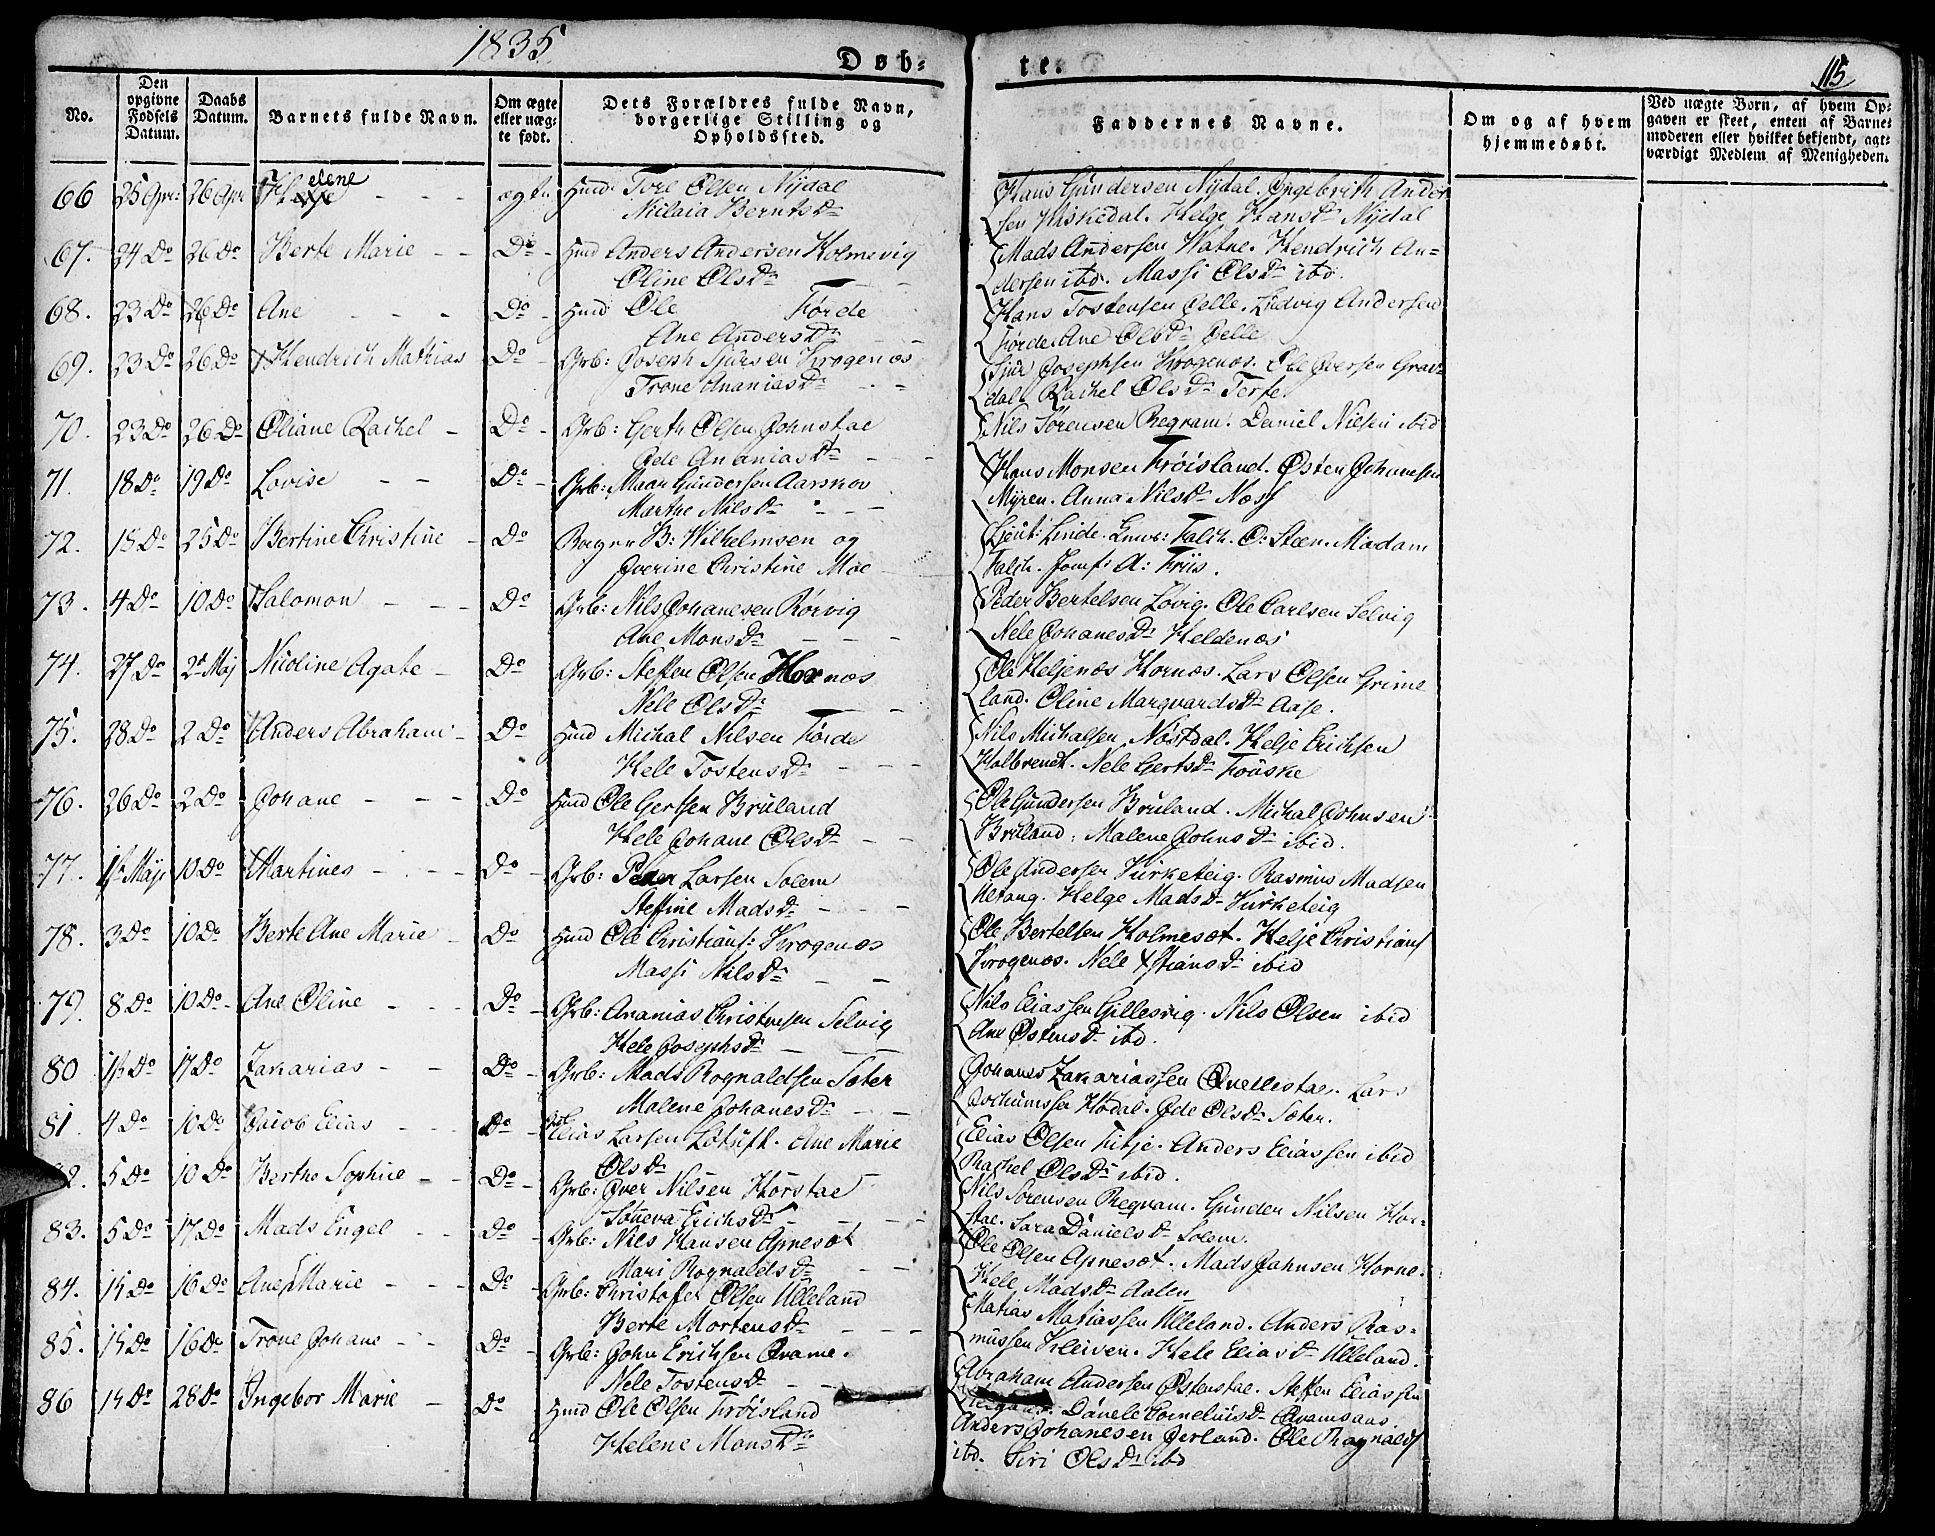 1835
Døb-
te.
115
No.
Den opgivne Fødsels Datum.
Daabs Datum.
Barnets fulde Navn.
Om ægte eller uægte født.
Dets Forældres fulde Navn, borgerlige Stilling og Opholdsted.
Faddernes Navne.
Om og af hvem hjemmedøbt.
Ved uægte Born, af hvem Opgaven er skeet, enten af Barnemoderen eller hvilket bekjendt, agtværdigt Medlem af Menigheden.
66 25 Apr: 26 Apr Helene - - ægt. Hmd: Tore Olsen Nÿdal
Nilaia Bernts Dr
Hans Gundersen Nÿdal. Ingebrith Ander
sen Hiskedal. Helge Hans Dr Nÿdal
67. 24 Do 26 Do Berte Marie - - Do - Hmd Anders Andersen Holmevig
Oline Ols Dr
Mads Andersen Watne. Hendrich An-
dersen ibd. Massi Ols Dr ibd.
68. 23 Do 26 Do Ane - - - Do - Hmd Ole Førde
Ane Anders Dr
Hans Tostensen Ødelle. Ludvig Andersen
Førde. Ane Ols Dr
69. 23 Do 26 Do Hendrich Mathias Do - Grb: Joseph Sjursen Krogenæs
Trone Ananias Dr - -
Sjur Josephsen Krogenæs. Ole Iversen Grav-
dal. Rachel Ols Dr Terfe.
70. 23 Do 26 Do Oliane Rachel - Do - Grb: Gerth Olsen Johnstae
Ode Ananias Dr
Nils Sørensen Regnam. Daniel Nielsen ibid
71. 18 Do 19 Do Lovise - - Do - Grb: Gundersen Aarskov
Marthe Nils Dr - - -
Hans Monsen Frøisland. Østen Johansen
Mÿren. Anna Nils Dr Næss
72. 18 Do 25 Do Bertine Christine - Do - B: Wilhelmsen og
Iverine Christine Moe
Lieut: Linde. Falch. O: Steen. Madam
Falch. Jomf: A: Friis.
73. 4 Do 10 Do Salomon - - - Do Grb: Nils Johanesen Rørvig
Ane Mons Dr - - -
Peder Bertelsen Løvig. Ole Carlsen Selvig
Nele Johanes Dr Heldenæs
74. 27 Do 2d Maj Nicoline Agate - Do Grb: Steffen Olsen Hornæs
Nele Ols Dr
Ole Heljenæs Hornæs. Lars Olsen Grime
land. Oline Marqvards Dr Aase.
75. 28 Do 2 Do Anders Abraham - Do Hmd Michal Nilsen Førde
Hele Tostens Dr - - -
Nils Michalsen Nøstdal. Helje Erichsen
Halbrendt. Nele Gerts Dr Fouske
76. 26 Do 2 Do Johane - - - Do Hmd Ole Gersen Bruland
Hele Johane Ols Dr - -
Ole Gundersen Bruland. Michal Johnsen
Bruland. Malene Johns Dr ibid.
77. 1st Maji 10 Do Martines - - - Do - Grb: Peder Larsen Solem
Steffine Mads Dr - - -
Ole Andersen Kirketeig. Rasmus Madsen
Helge Mads Dr Kirketeig
78. 3 Do 10 Do Berte Ane Marie - Do Hmd Ole Christians: Krogenæs
Massi Nils Dr - -
Ole Bertelsen Holmesæt. Helje Christians
Krogenæs. Nele Xstians Dr ibid
79. 8 Do 10 Do - Ane Oline - - Do - Grb: Ananias Christensen Selvig
Hele Josephs Dr
Nils Eliassen Gillesvig. Nils Olsen ibid
Ane Østens Dr ibd.
80 Do 17 Do Zakarias - - Do - Grb: Mads Rognaldsen Sæter
Malene Johanes Dr - -
Johanes Zakariassen Qvellestae. Lars
Jochumssen Hødal. Ode Ols Dr Sæter.
81. 4 Do 10 Do Jacob Elias - - - Do - Elias Larsen Løtuft. Ane Marie
Ols Dr
Elias Olsen Fitje. Anders Eliassen ibid
Rachel Ols Dr ibid.
82. 5 Do 10 Do Berthe Sophie - - Do - Grb: Iver Nilsen Horstae
Søneva Erichs Dr - -
Nils Sørensen Regnam. Gunder Nilsen Hor-
stae. Sara Daniels Dr Solem.
83. 5 Do 17 Do Mads Engel - - Do - Grb: Nils Hansen Apnesæt
Mari Rognalds Dr - -
Ole Olsen Apnesæt. Mads Jahnsen Horne.
Hele Mads Dr Aalen
84. 15 Do 16 Do Ane Marie - - - Do - Grb: Christofer Olsen Ulleland
Berte Mortens Dr - - -
Matias Matiassen Ulleland. Anders Ras-
mussen Kleiven. Hele Elias Dr Ulleland.
85. 15 Do 16 Do Trone Johane - - Do - Grb: John Erichsen Qvame.
Nele Tostens Dr - -
Abraham Andersen Østenstae. Steffen Eliassen
Danele Cornelius Dr
86 14 Do 28 Do Ingebor Marie - Do Hmd Ole Olsen Frøisland
Helene Mons Dr
Anders Johanesen Jerland. Ole Ragnalds
ibd. Siri Ols Dr ibd